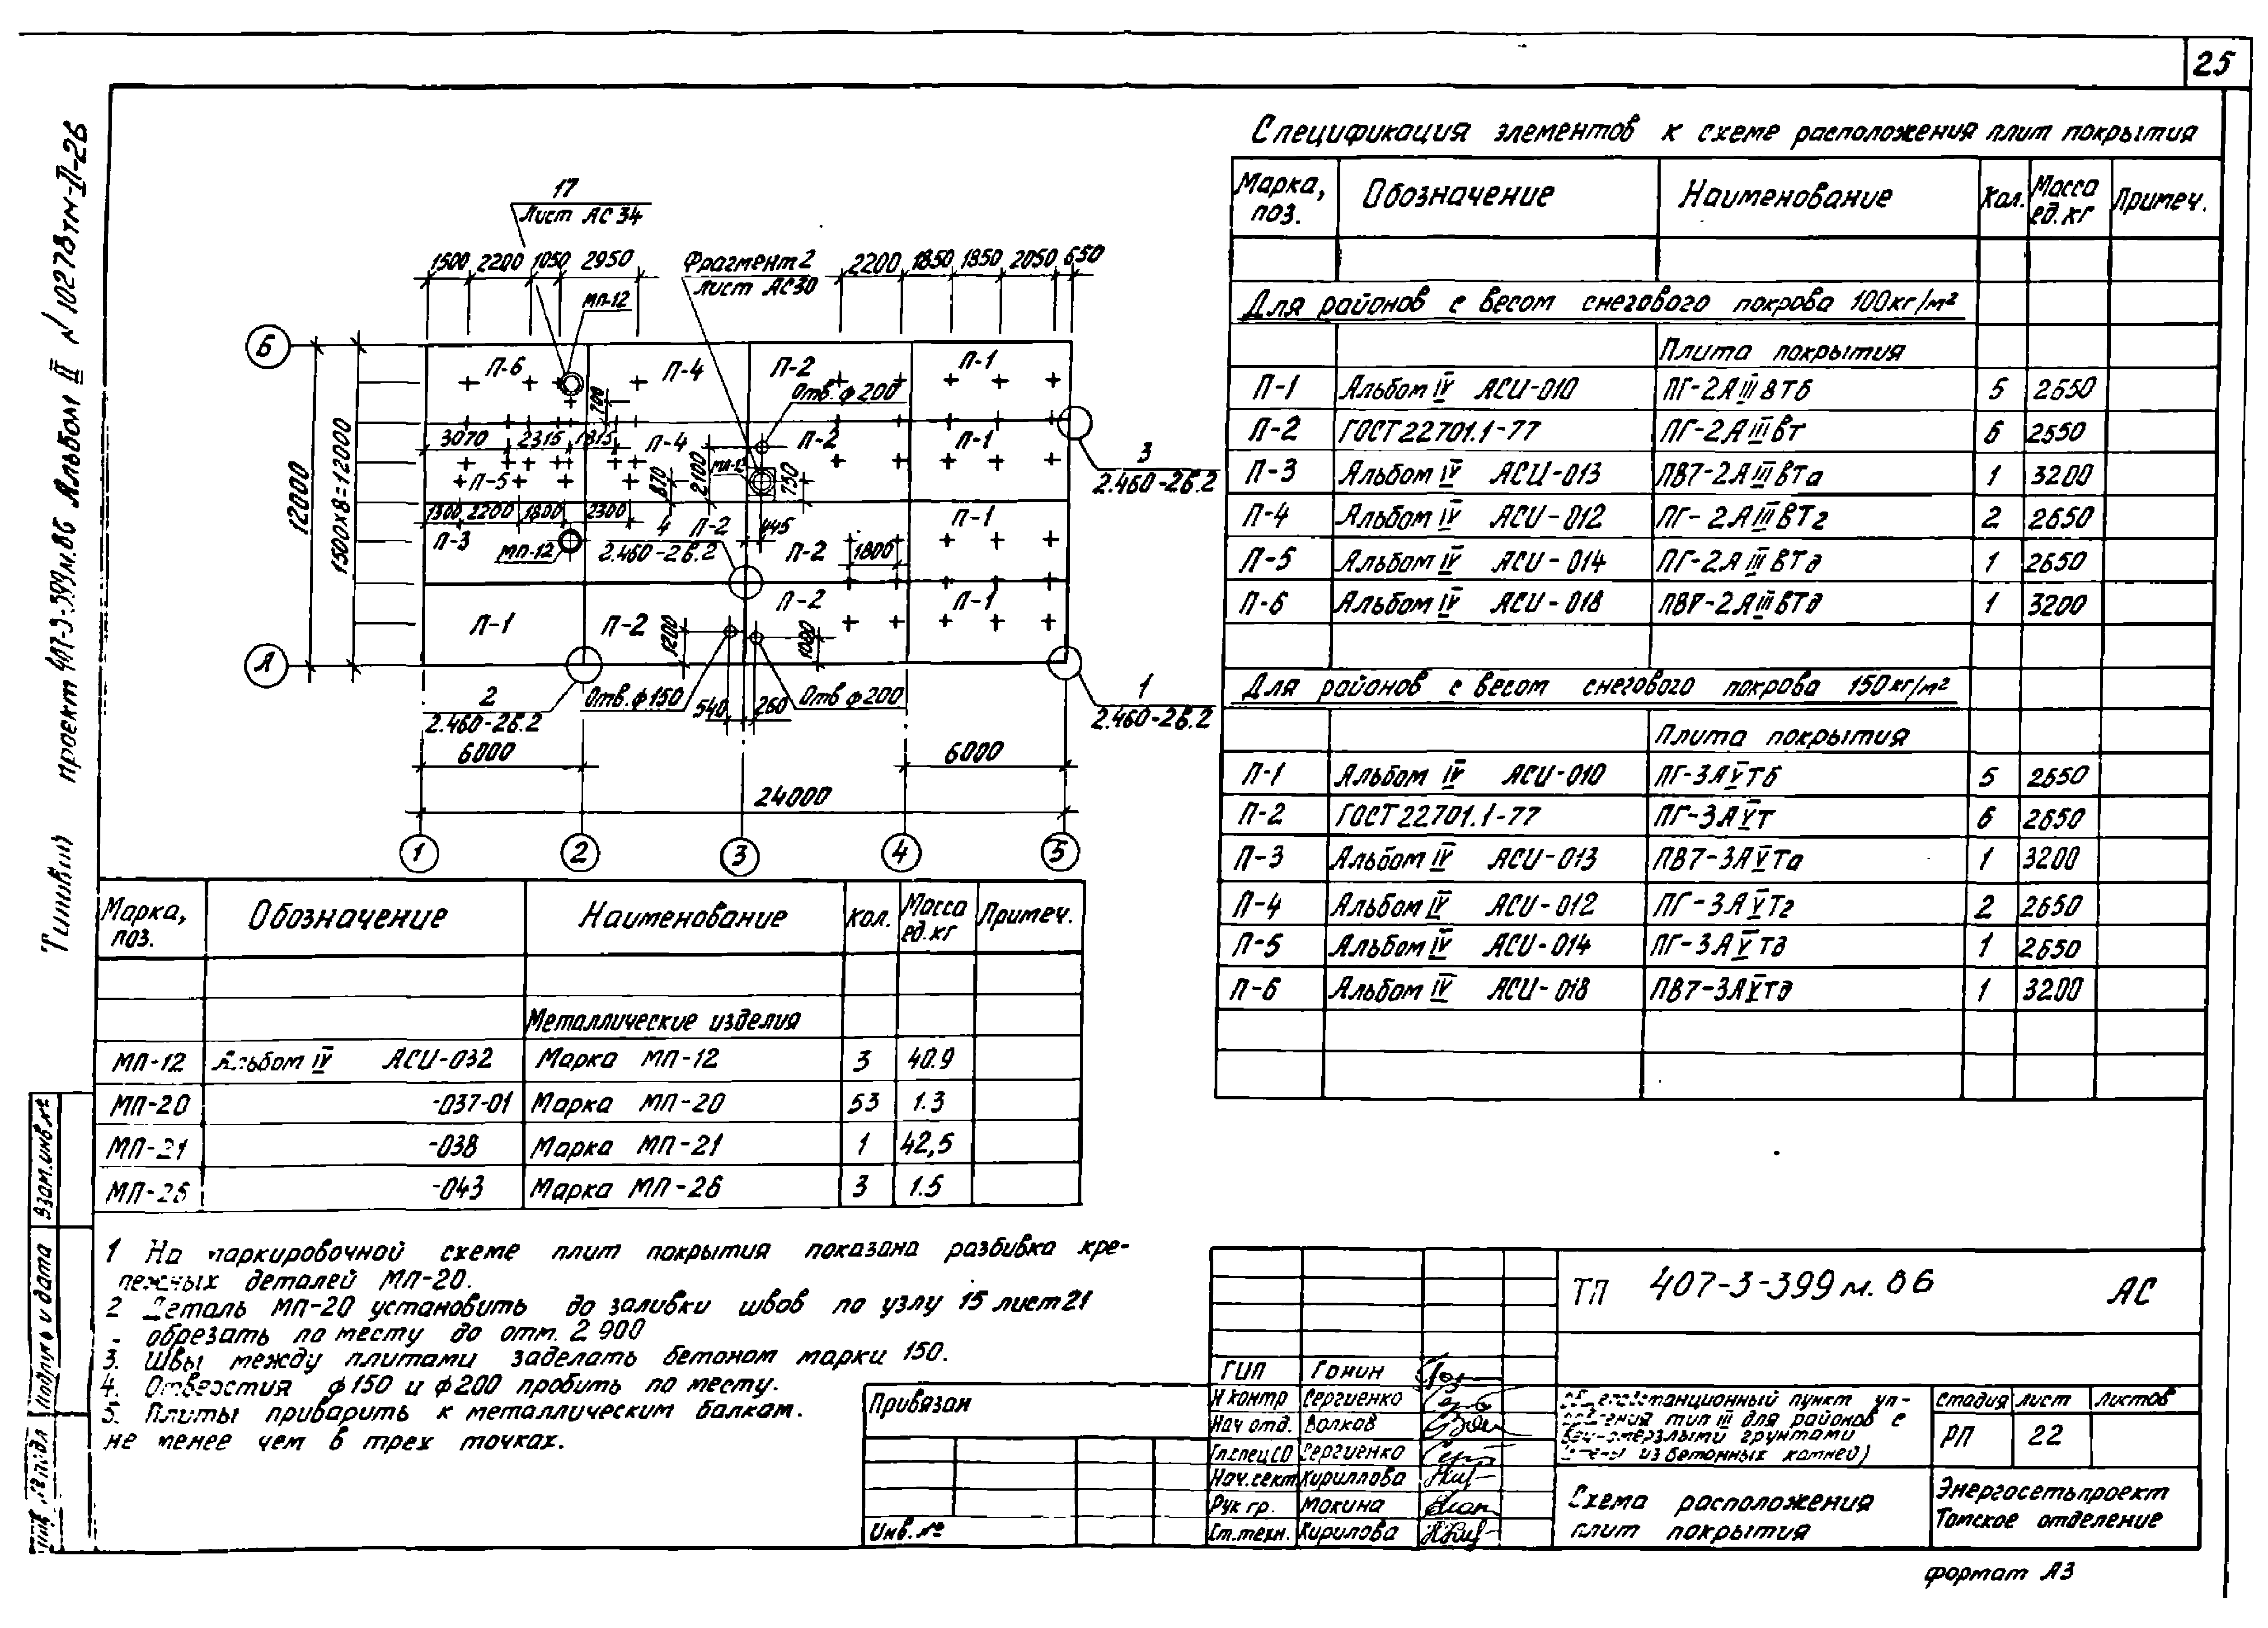 25
Типовой проект 407-3-399м.86 Альбом II № 10278тм-II-26
17
Лист АС 34
1500 2200 1050 2950
МП-12
Фрагмент 2
Лист АС30
2200 1850 1850 2050 650
Б
П-6 П-4 П-2 П-1
Отв. ф 200
700
3070 2315 1315
П-4 П-2 П-1
МП-12
П-5
870 2100 750
3
2.460-2в.2
12000
1500х8=12000
1500 2200 1800 2300
4
2.460-2в.2
П-2
445
П-1
П-3
МП-12
П-2
1800
П-2 П-1
П-1 П-2
1200
1000
А
2
2.460-2в.2
Отв. ф 150
540 260
Отв ф 200
1
2.460-2в.2
6000 6000
24000
1 2 3 4 5
Спецификация элементов к схеме расположения плит покрытия
Марка, поз. Обозначение Наименование Кол. Масса ед. кг Примеч.
Для районов с весом снегового покрова 100кг/м²
Плита покрытия
П-1 Альбом IV АСИ-010 ПГ-2АIIIвТб 5 2650
П-2 ГОСТ 22701.1-77 ПГ-2АIIIвт 6 2650
П-3 Альбом IV АСИ-013 ПВ7-2АIIIвТа 1 3200
П-4 Альбом IV АСИ-012 ПГ-2АIIIвТг 2 2650
П-5 Альбом IV АСИ-014 ПГ-2АIIIвТд 1 2650
П-6 Альбом IV АСИ-018 ПВ7-2АIIIвТд 1 3200
Для районов с весом снегового покрова 150кг/м²
Плита покрытия
П-1 Альбом IV АСИ-010 ПГ-3АVТб 5 2650
П-2 ГОСТ 22701.1-77 ПГ-3АVт 6 2650
П-3 Альбом IV АСИ-013 ПВ7-3АVТа 1 3200
П-4 Альбом IV АСИ-012 ПГ-3АVТг 2 2650
П-5 Альбом IV АСИ-014 ПГ-3АVТд 1 2650
П-6 Альбом IV АСИ-018 ПВ7-3АVТд 1 3200
Марка, поз. Обозначение Наименование Кол. Масса ед. кг Примеч.
Металлические изделия
МП-12 Альбом IV АСИ-032 Марка МП-12 3 40.9
МП-20 -037-01 Марка МП-20 53 1.3
МП-21 -038 Марка МП-21 1 42,5
МП-26 -043 Марка МП-26 3 1.5
1 На маркировочной схеме плит покрытия показана разбивка кре-
пежных деталей МП-20.
2 Деталь МП-20 установить до заливки швов по узлу 15 лист 21
обрезать по месту до отм. 2 900
3. Швы между плитами заделать бетоном марки 150.
4. Отверстия ф 150 и ф 200 пробить по месту.
5. Плиты приварить к металлическим балкам.
не менее чем в трех точках.
Взам. инв №
Подпись и дата
Инв. № подл
Привязан
Инв. №
ТП 407-3-399м.86 АС
ГИП Гонин
Н контр Сергиенко
Нач отд. Волков
Гл.спец СО Сергиенко
Нач.сект. Кириллова
Рук гр. Мокина
Ст.техн. Кирилова
Общеподстанционный пункт уп-
равления тип III для районов с
вечномерзлыми грунтами
(стены из бетонных камней)
Стадия Лист Листов
РП 22
Схема расположения
плит покрытия
Энергосетьпроект
Томское отделение
формат А3